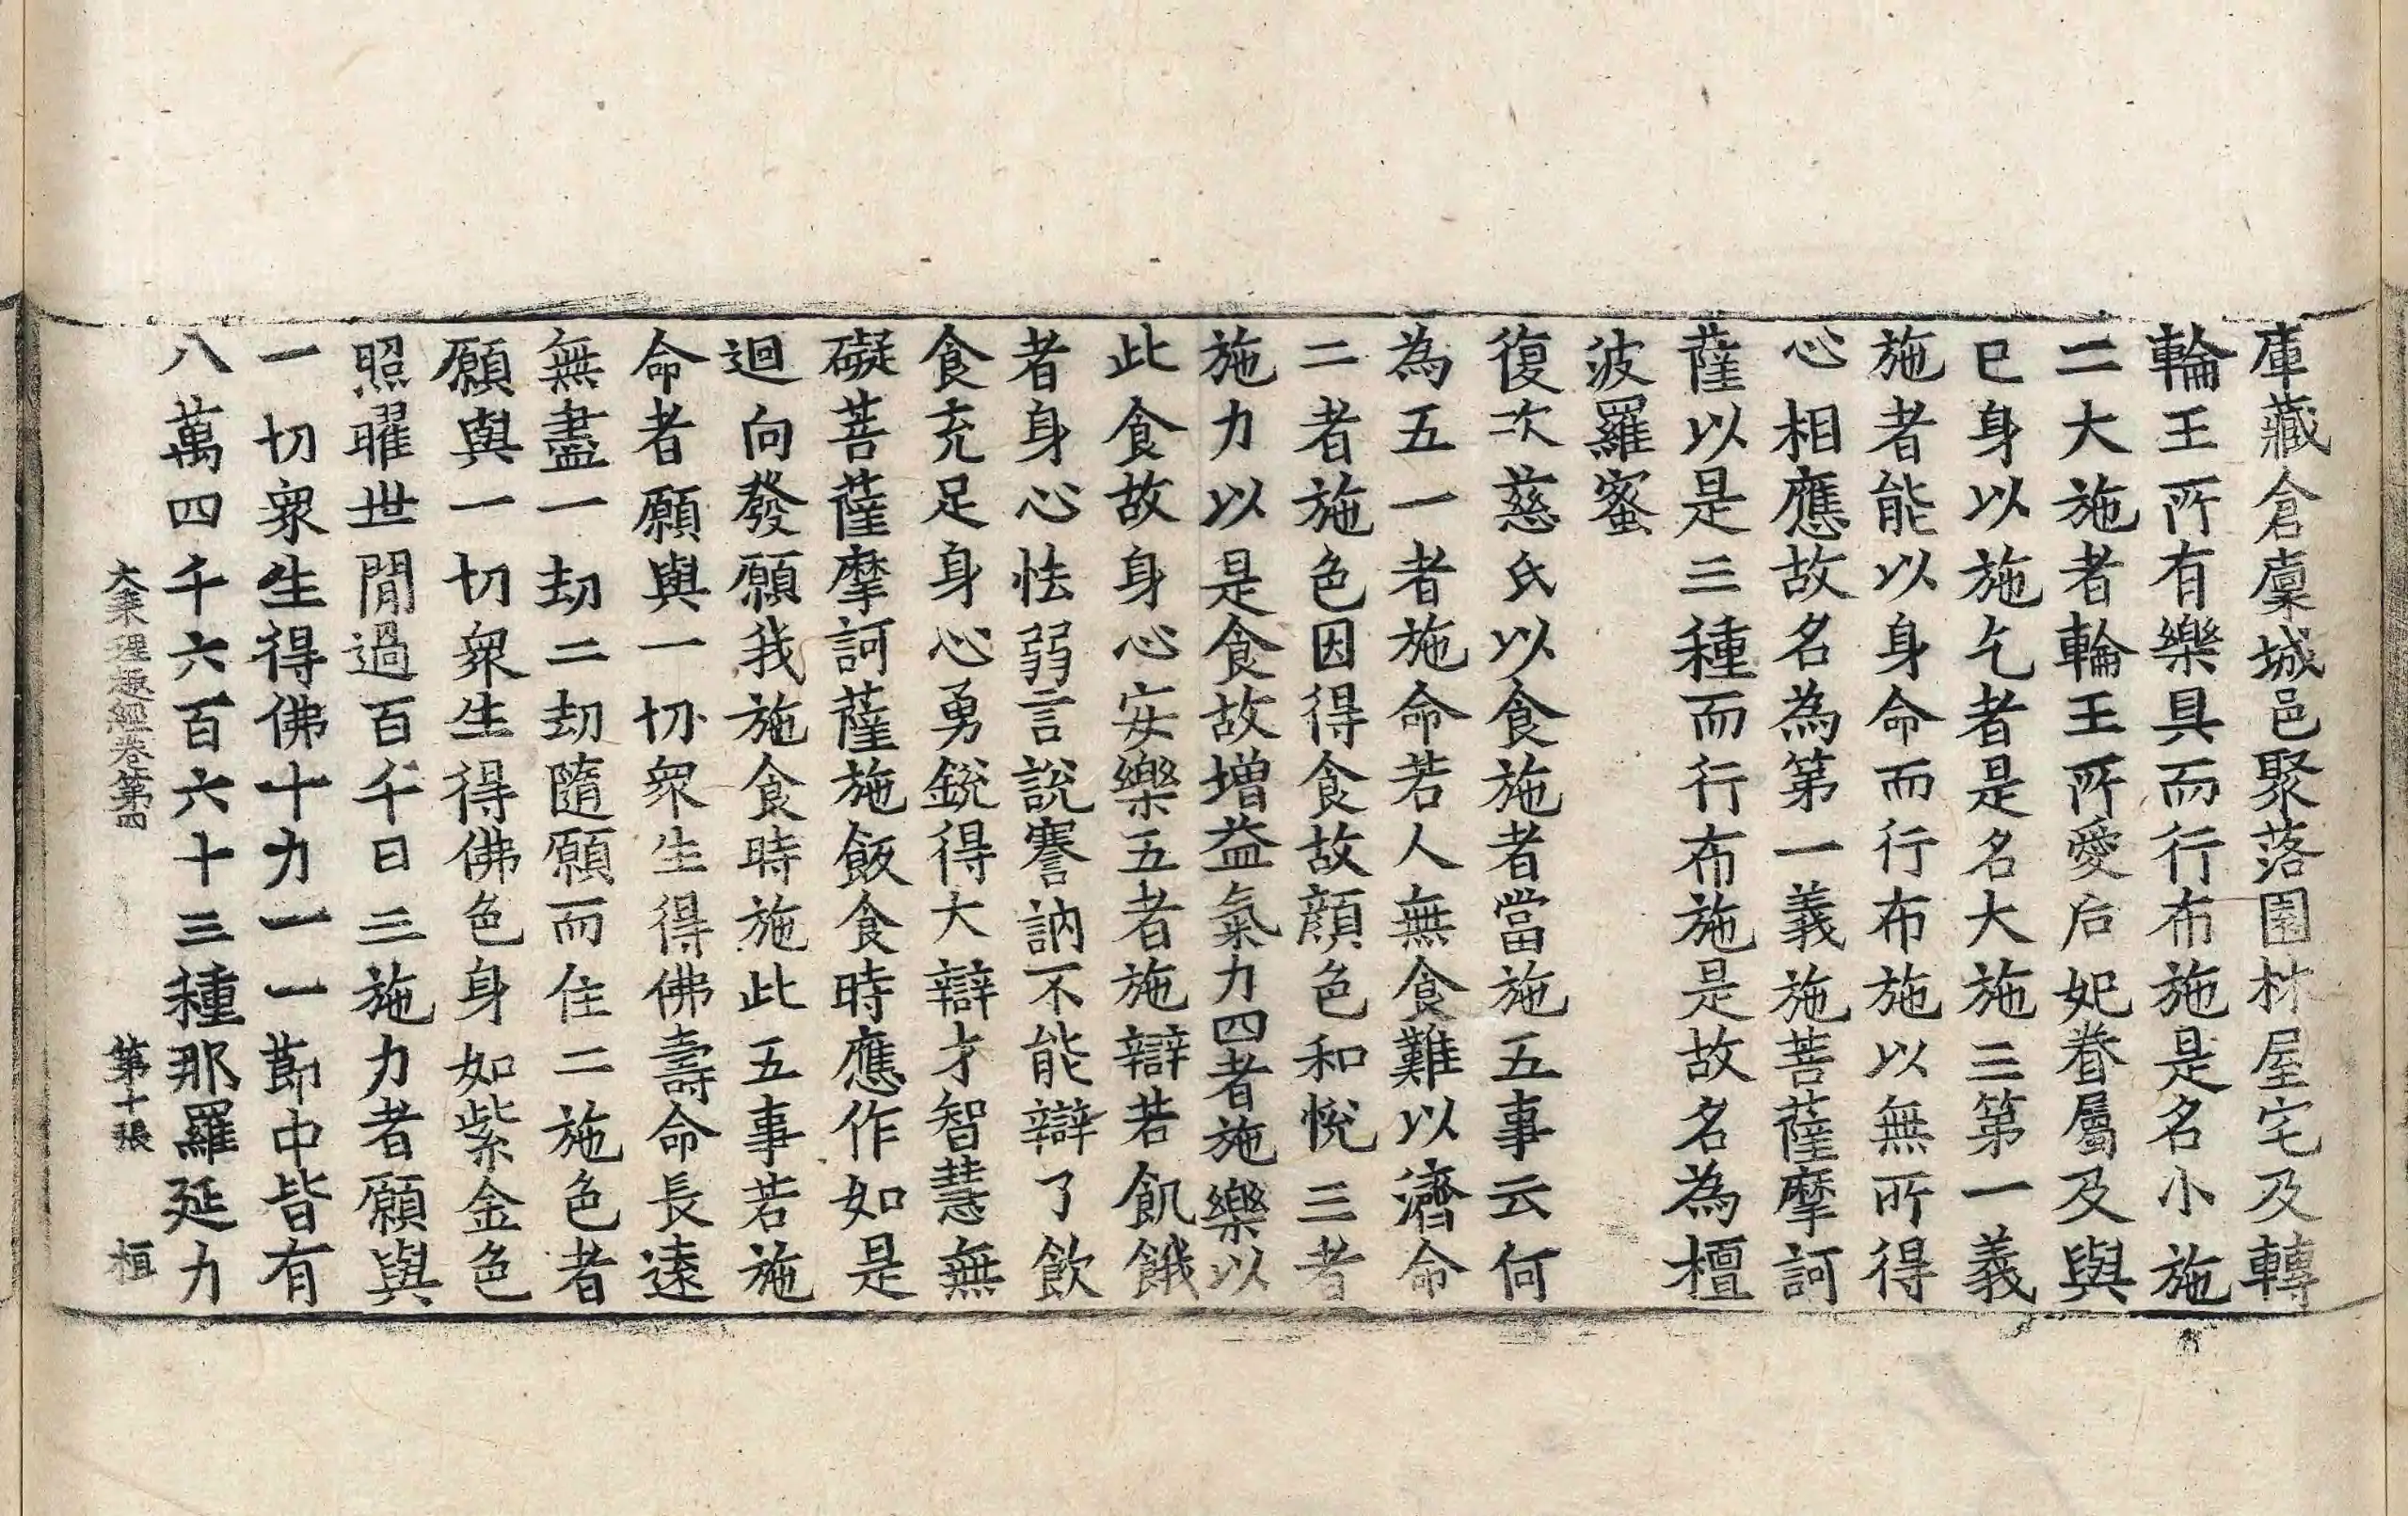 庫藏倉稟城邑聚落園林屋宅及轉
輪王所有樂具而行布施是名小施
二大施者輪王所愛后妃眷屬及與
已身以施乞者是名大施三第一義
施者能以身命而行布施以無所得
心相應故名為第一義施菩薩摩訶
薩以是三種而行布施是故名為檀
波羅蜜
復次慈氏以食施者當施五事云何
為五一者施命若人無食難以濟命
二者施色因得食故顔色和悅三者
施力以是食故增益氣力四者施樂以
此食故身心安樂五者施辯若飢餓
者身心怯弱言說謇訥不能辯了飲
食充足身心勇銳得大辯才智慧無
礙菩薩摩訶薩施飯食時應作如是
迴向發願我施食時施此五事若施
命者願與一切衆生得佛壽命長遠
無盡一劫二劫隨願而住二施色者
願與一切衆生得佛色身如紫金色
照曜世間過百千日三施力者願與
一切衆生得佛十力一一節中皆有
八萬四千六百六十三種那羅延力
大乘理趣經卷第四 第十張 桓